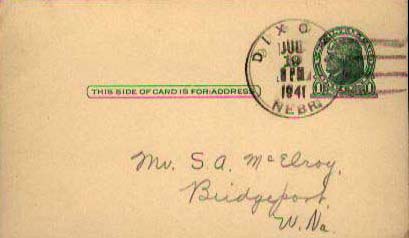 DIXON
JUL
19
PM
1941
NEBR.
THIS SIDE OF CARD IS FOR ADDRESS
Mr. S.A. McElroy,
Bridgeport,
W. Va.